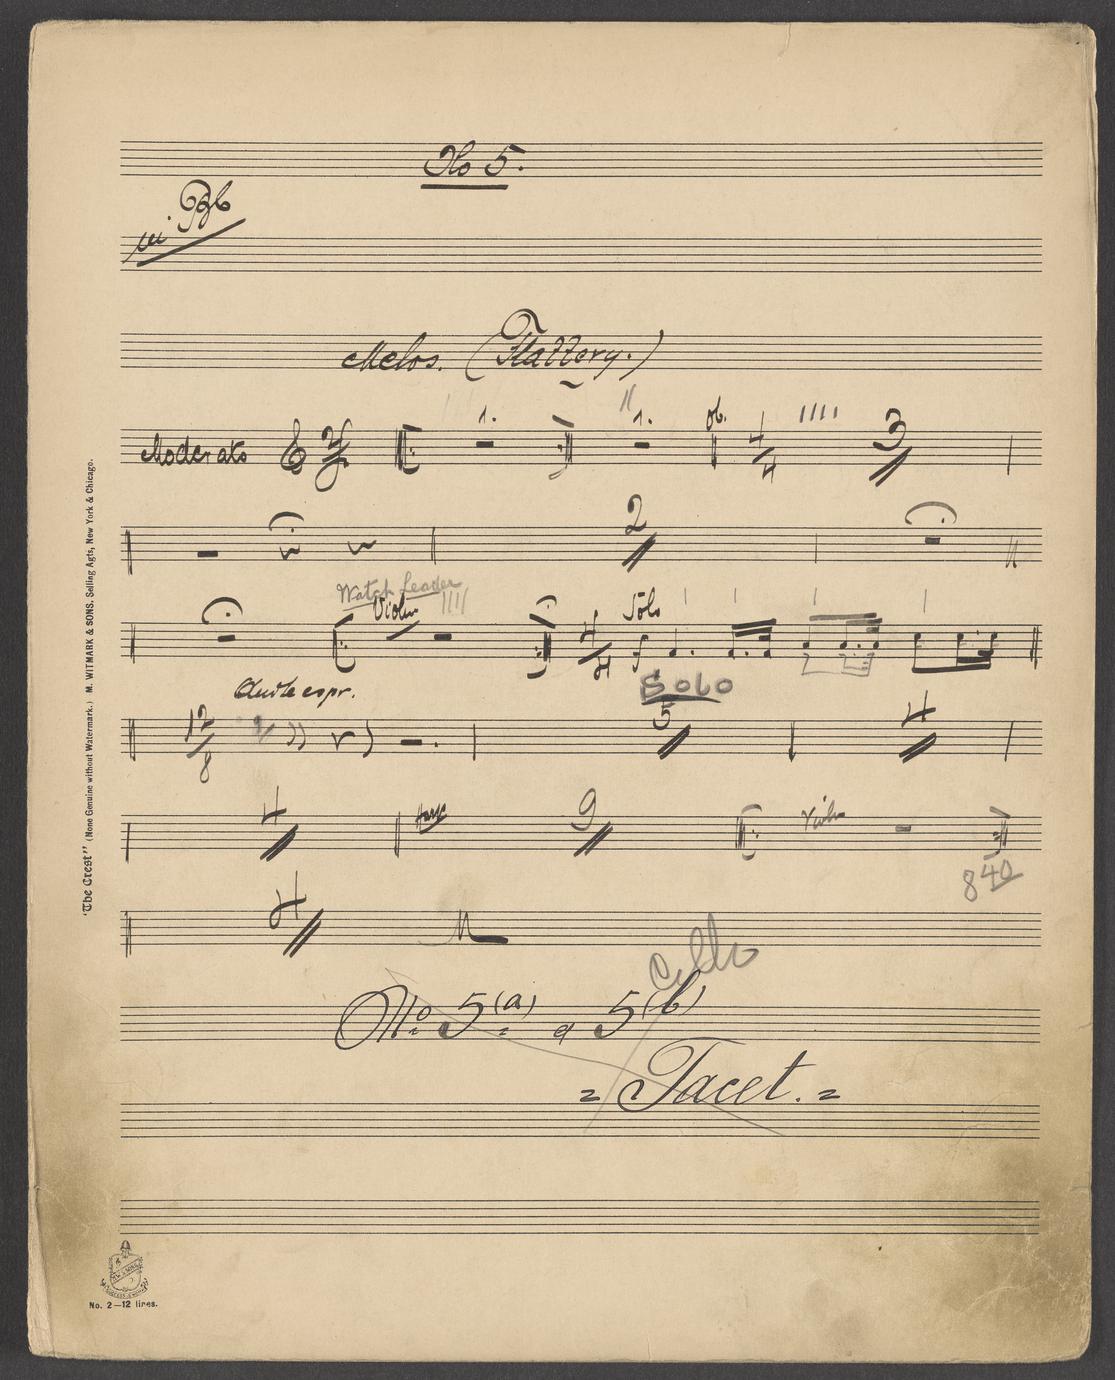 No 5.
in Bb
Melos. (Flattery.)
1. 1. ob. 4/4 3
Moderato
2
Watch Leader
Violin Solo
4/4 f
Solo
Andte espr.
12/8 5 4
4 Harp 9 Violin
840
4
Cello
No. 5(a) a 5(b)
= Tacet. =
"The Crest" (None Genuine without Watermark.) M. WITMARK & SONS. Selling Agts, New York & Chicago.
No. 2—12 lines.